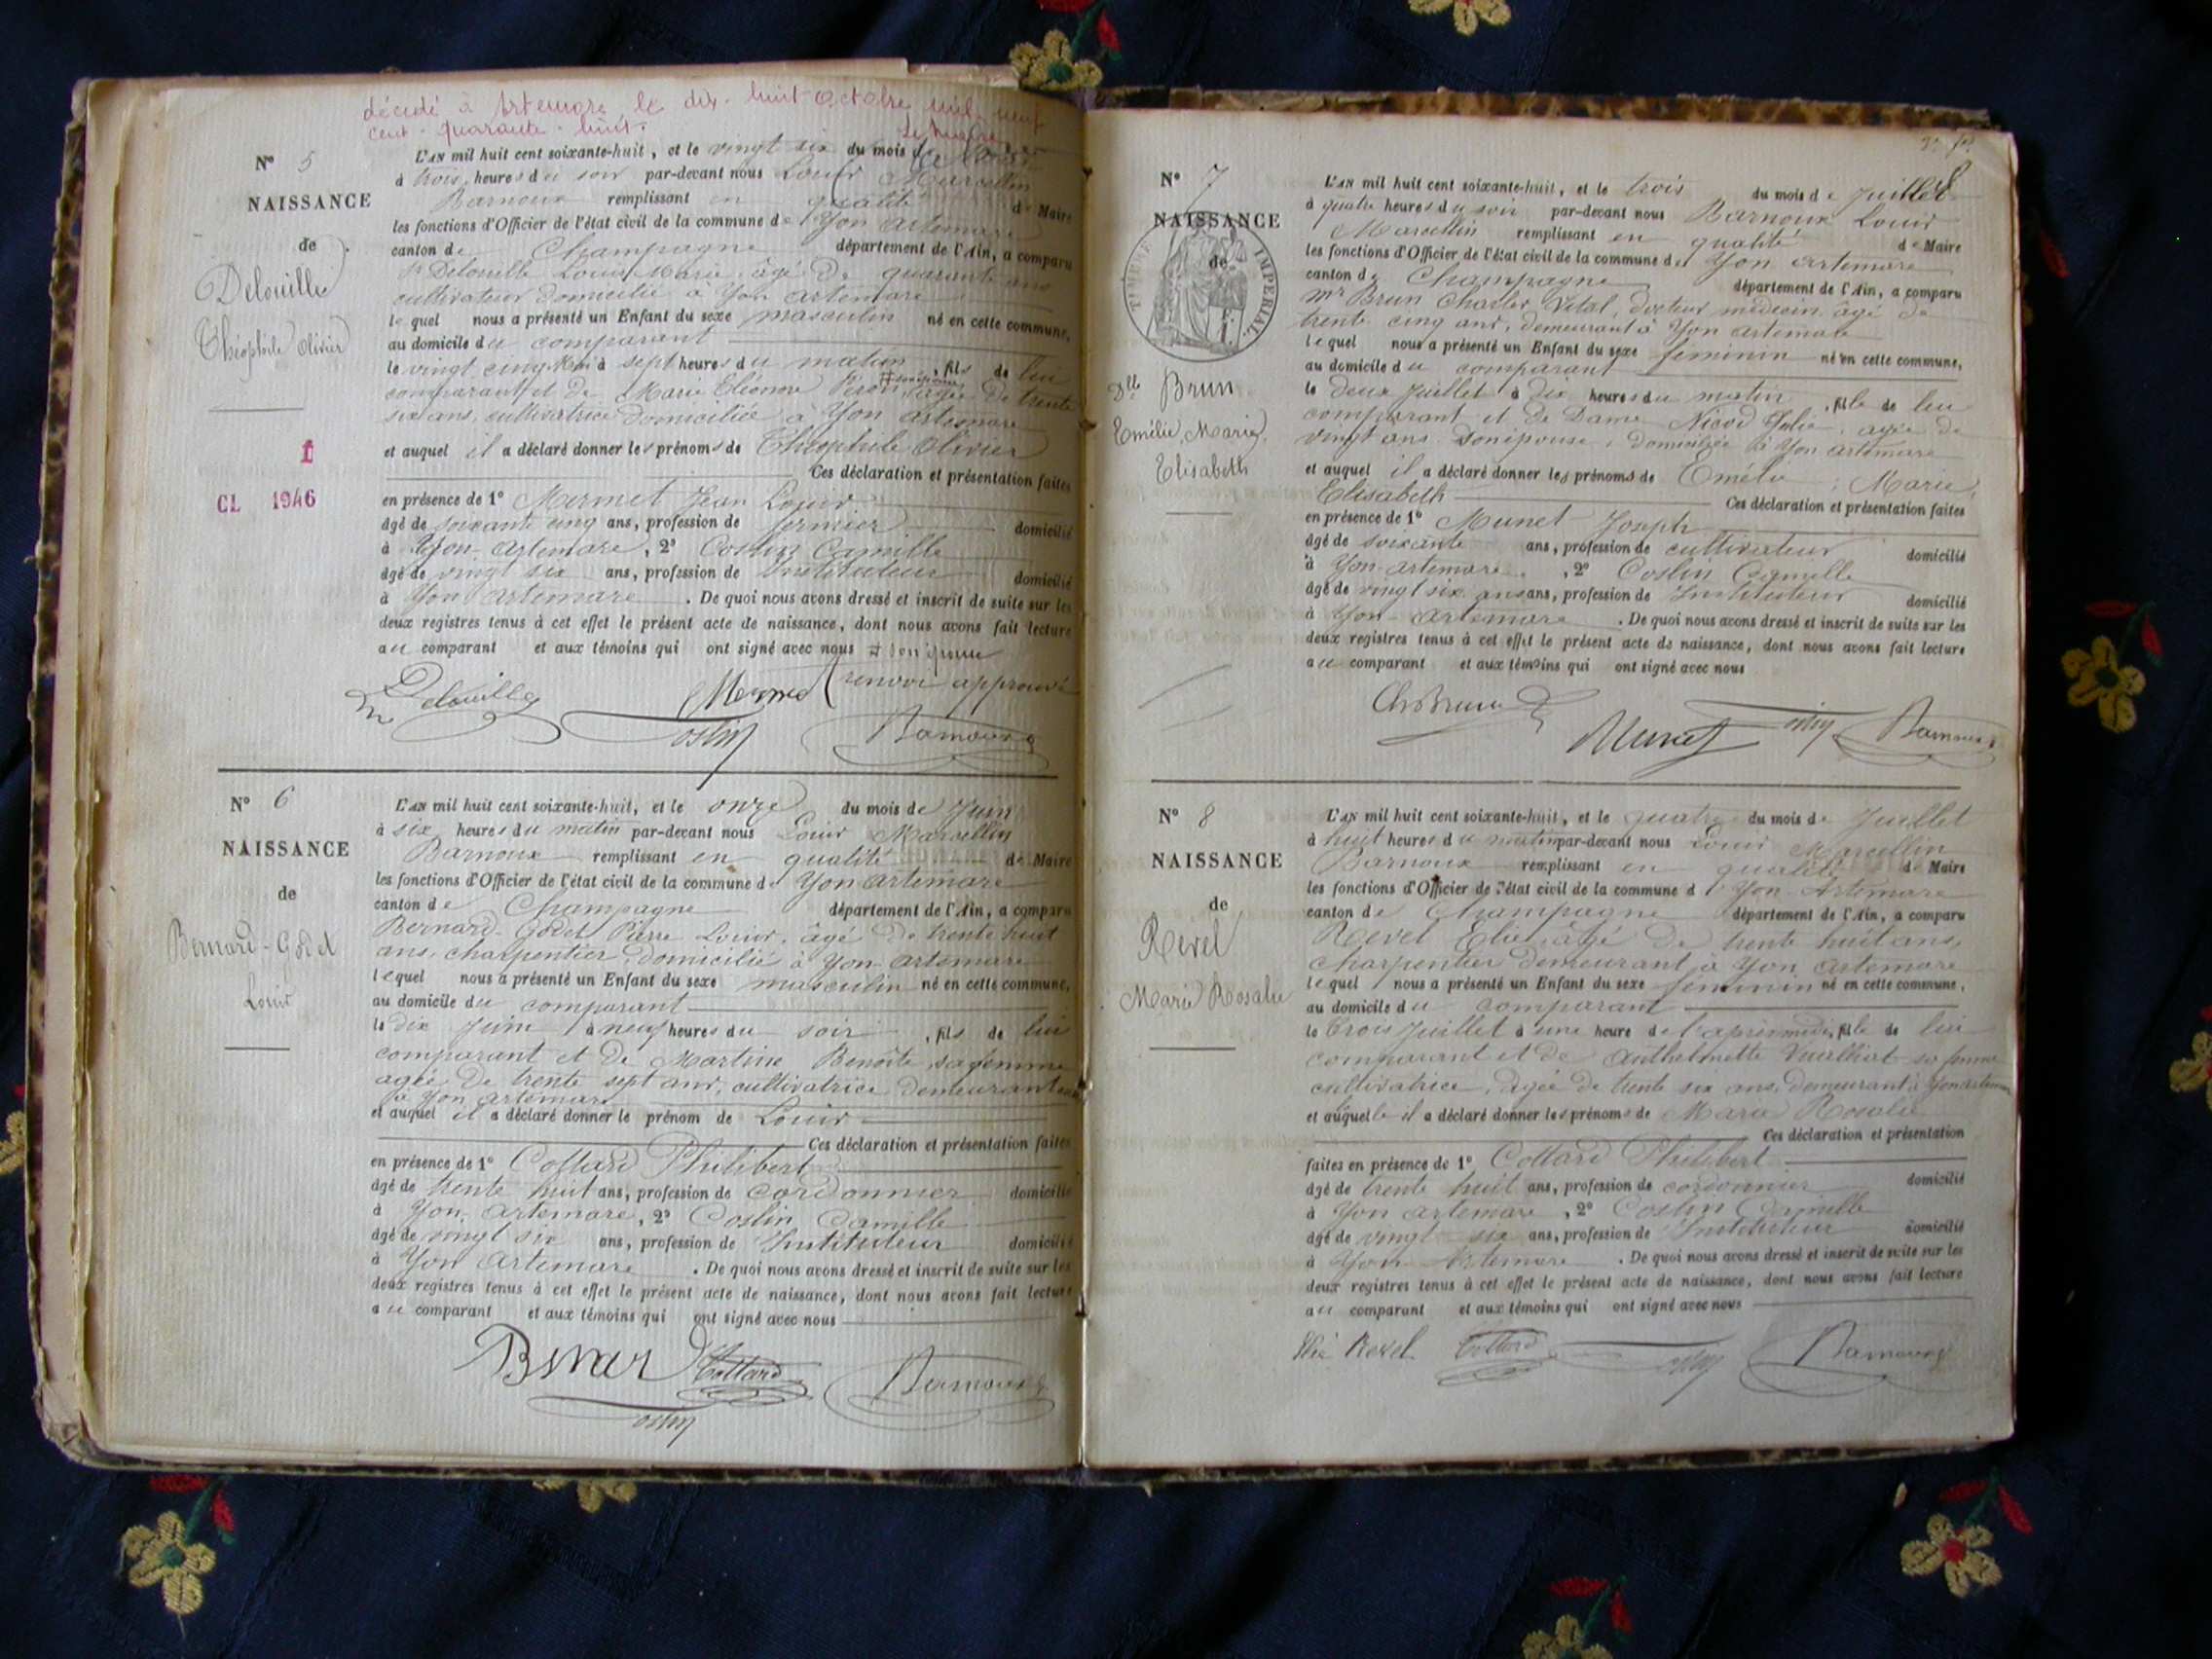 décédé à Artemare le dix-huit octobre mil neuf
cent quarante-huit.
Le Maire
N° 5
NAISSANCE
de
Delouille
Théophile Olivier
1
CL 1946
L'AN mil huit cent soixante-huit, et le vingt six du mois de
à trois heures du soir par-devant nous Louis Marcellin
Barnoux remplissant en qualité de Maire
les fonctions d'Officier de l'état civil de la commune de Yon Artemare
canton de Champagne département de l'Ain, a comparu
Sr Delouille Louis Marie, âgé de quarante ans
cultivateur domicilié à Yon Artemare
lequel nous a présenté un Enfant du sexe masculin né en cette commune,
au domicile du comparant
le vingt cinq Mai à sept heures du matin, fils de lui
comparant et de Marie Eléonore âgée de trente
six ans, cultivatrice domiciliée à Yon Artemare
et auquel il a déclaré donner les prénoms de Théophile Olivier
Ces déclaration et présentation faites
en présence de 1° Mermet Jean Louis
âgé de soixante cinq ans, profession de fermier domicilié
à Yon-Artemare, 2° Coslin Camille
âgé de vingt six ans, profession de Instituteur domicilié
à Yon Artemare. De quoi nous avons dressé et inscrit de suite sur les
deux registres tenus à cet effet le présent acte de naissance, dont nous avons fait lecture
au comparant et aux témoins qui ont signé avec nous # son épouse
(renvoi approuvé
Delouille Mermet
Coslin Barnoux
N° 6
NAISSANCE
de
Bernard-Godet
Louis
L'AN mil huit cent soixante-huit, et le onze du mois de Juin
à six heures du matin par-devant nous Louis Marcellin
Barnoux remplissant en qualité de Maire
les fonctions d'Officier de l'état civil de la commune de Yon Artemare
canton de Champagne département de l'Ain, a comparu
Bernard-Godet Pierre Louis, âgé de trente huit
ans, charpentier, domicilié à Yon-Artemare
lequel nous a présenté un Enfant du sexe masculin né en cette commune,
au domicile du comparant
le dix Juin à neuf heures du soir, fils de lui
comparant et de Martine Benoîte sa femme
agée de trente sept ans, cultivatrice demeurant
à Yon Artemare
et auquel il a déclaré donner le prénom de Louis
Ces déclaration et présentation faites
en présence de 1° Collard Philibert
âgé de trente huit ans, profession de cordonnier domicilié
à Yon-Artemare, 2° Coslin Camille
âgé de vingt six ans, profession de Instituteur domicilié
à Yon Artemare. De quoi nous avons dressé et inscrit de suite sur les
deux registres tenus à cet effet le présent acte de naissance, dont nous avons fait lecture
au comparant et aux témoins qui ont signé avec nous
Bernar Collard Barnoux
Coslin
N° 7
NAISSANCE
de
TIMBRE IMPERIAL
Dlle Brun
Emélie, Marie,
Elisabeth
L'AN mil huit cent soixante-huit, et le trois du mois de Juillet
à quatre heures du soir par-devant nous Barnoux Louis
Marcellin remplissant en qualité de Maire
les fonctions d'Officier de l'état civil de la commune de Yon Artemare
canton de Champagne département de l'Ain, a comparu
Mr Brun Charles Vital, docteur médecin âgé de
trente cinq ans, demeurant à Yon Artemare
lequel nous a présenté un Enfant du sexe féminin né en cette commune,
au domicile du comparant
le deux Juillet à dix heures du matin, fille de lui
comparant et de Dame Nicod Julie, agée de
vingt ans son épouse, domiciliée à Yon Artemare
et auquel il a déclaré donner les prénoms de Emélie, Marie,
Elisabeth Ces déclaration et présentation faites
en présence de 1° Munet Joseph
âgé de soixante ans, profession de cultivateur domicilié
à Yon-Artemare, 2° Coslin Camille
âgé de vingt six ans ans, profession de Instituteur domicilié
à Yon-Artemare. De quoi nous avons dressé et inscrit de suite sur les
deux registres tenus à cet effet le présent acte de naissance, dont nous avons fait lecture
au comparant et aux témoins qui ont signé avec nous
Ch Brun Munet Coslin Barnoux
N° 8
NAISSANCE
de
Revel
Marie Rosalie
L'AN mil huit cent soixante-huit, et le quatre du mois de Juillet
à huit heures du matin par-devant nous Louis Marcellin
Barnoux remplissant en qualité de Maire
les fonctions d'Officier de l'état civil de la commune d Yon-Artemare
canton de Champagne département de l'Ain, a comparu
Revel Elie, âgé de trente huit ans,
charpentier demeurant à Yon Artemare
lequel nous a présenté un Enfant du sexe féminin né en cette commune,
au domicile du comparant
le trois Juillet à une heure de l'après midi, fille de lui
comparant et de Anthelmette Vuilliot sa femme
cultivatrice, âgée de trente six ans, demeurant à Yon Artemare
et auquelle il a déclaré donner les prénoms de Marie Rosalie
Ces déclaration et présentation
faites en présence de 1° Collard Philibert
âgé de trente huit ans, profession de cordonnier domicilié
à Yon Artemare, 2° Coslin Camille
âgé de vingt six ans, profession de Instituteur domicilié
à Yon-Artemare. De quoi nous avons dressé et inscrit de suite sur les
deux registres tenus à cet effet le présent acte de naissance, dont nous avons fait lecture
au comparant et aux témoins qui ont signé avec nous
Elie Revel Collard Coslin Barnoux